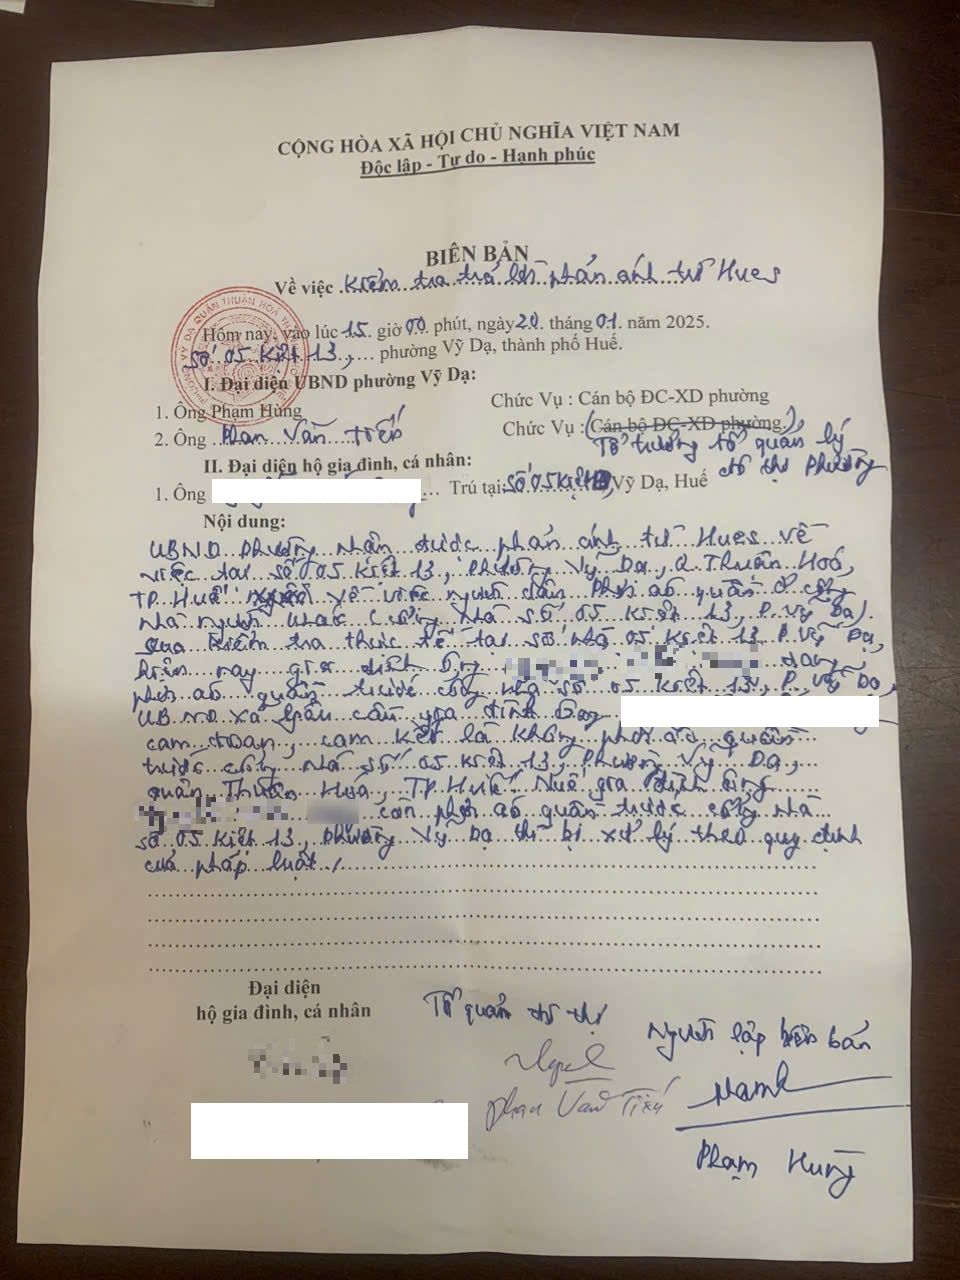 CỘNG HÒA XÃ HỘI CHỦ NGHĨA VIỆT NAM
Độc lập - Tự do - Hạnh phúc
BIÊN BẢN
Về việc Kiểm tra trả lời phản ánh từ Hues
Hôm nay, vào lúc 15 giờ 00 phút, ngày 20 tháng 01 năm 2025.
Số 05 Kiệt 13, phường Vỹ Dạ, thành phố Huế.
I. Đại diện UBND phường Vỹ Dạ:
1. Ông Phạm Hùng Chức Vụ : Cán bộ ĐC-XD phường
2. Ông Phan Văn Tiến Chức Vụ : (Cán bộ ĐC-XD phường.)
Tổ trưởng tổ quản lý
đô thị phường
II. Đại diện hộ gia đình, cá nhân:
1. Ông Trú tại: Số 05 Kiệt 13, Vỹ Dạ, Huế
Nội dung:
UBND phường nhận được phản ánh từ Hues về
việc tại số 05 Kiệt 13, Phường Vỹ Dạ, Q. Thuận Hoá,
TP. Huế về việc người dân phơi áo quần ở cổng
nhà người khác (cổng nhà số 05 Kiệt 13, P. Vỹ Dạ).
Qua kiểm tra thực tế tại số nhà 05 Kiệt 13 P. Vỹ Dạ,
hiện nay gia đình ông đang
phơi áo quần trước cổng nhà số 05 Kiệt 13, P. Vỹ Dạ,
UBND yêu cầu gia đình ông
cam đoan, cam kết là không phơi áo quần
trước cổng nhà số 05 Kiệt 13, Phường Vỹ Dạ,
quận Thuận Hoá, TP. Huế. Nếu gia đình ông
còn phơi áo quần trước cổng nhà
số 05 Kiệt 13, phường Vỹ Dạ thì bị xử lý theo quy định
của pháp luật./
Đại diện
hộ gia đình, cá nhân
Tổ quản đô thị
Người lập biên bản
Phan Văn Tiến
Phạm Hùng